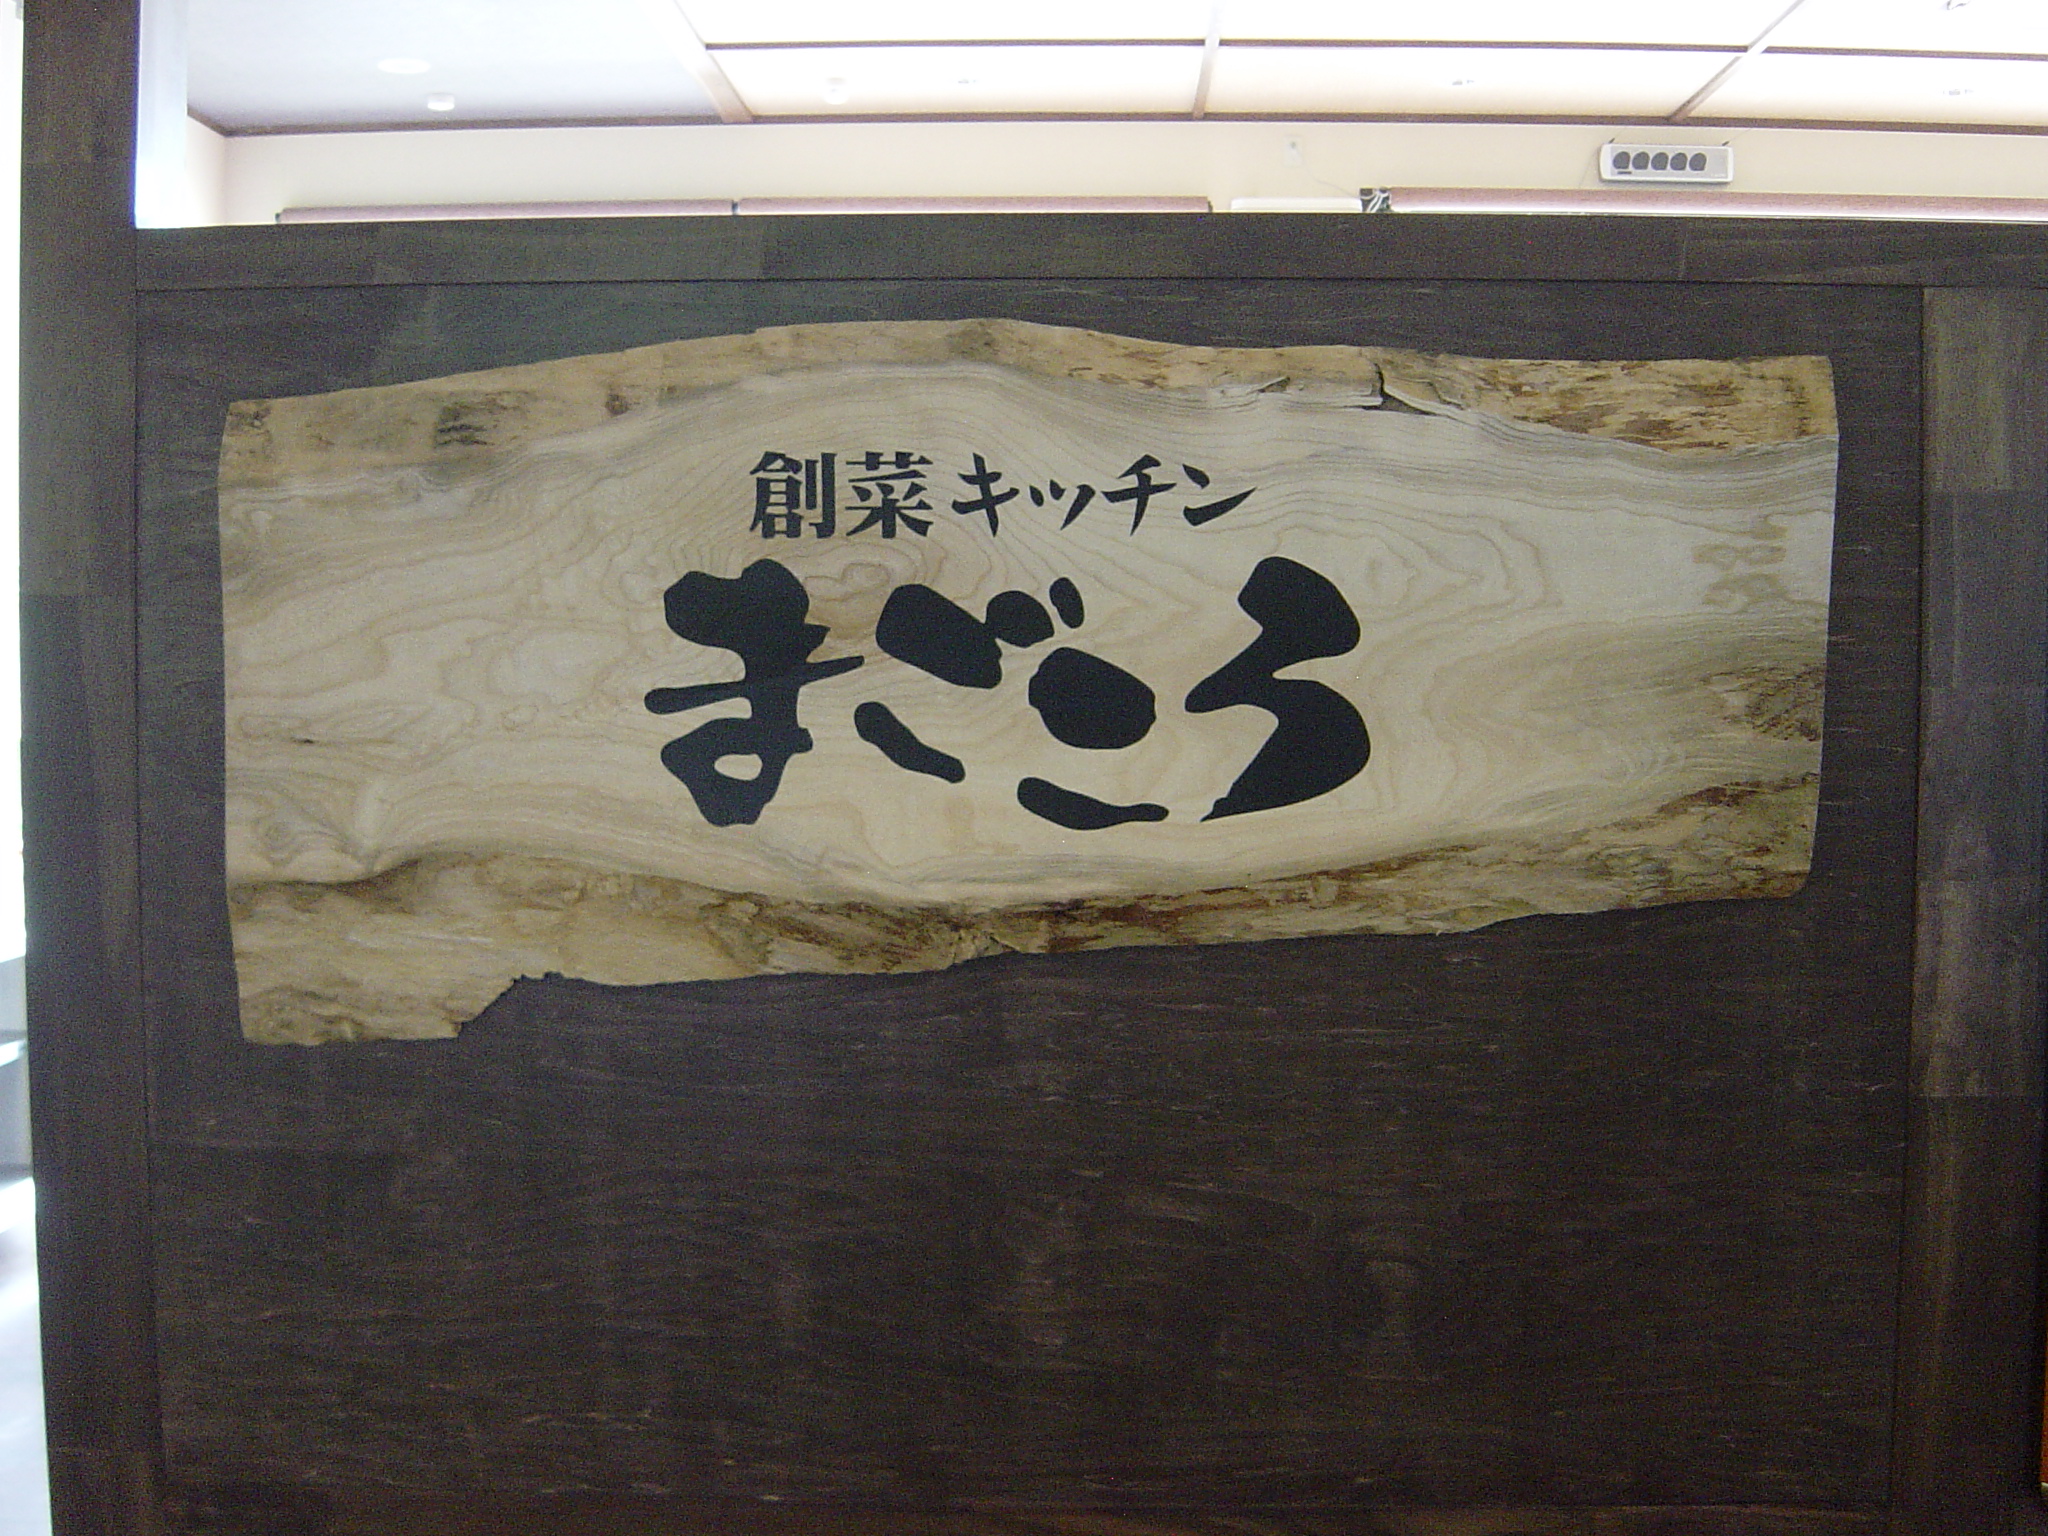 創菜キッチン
まごころ